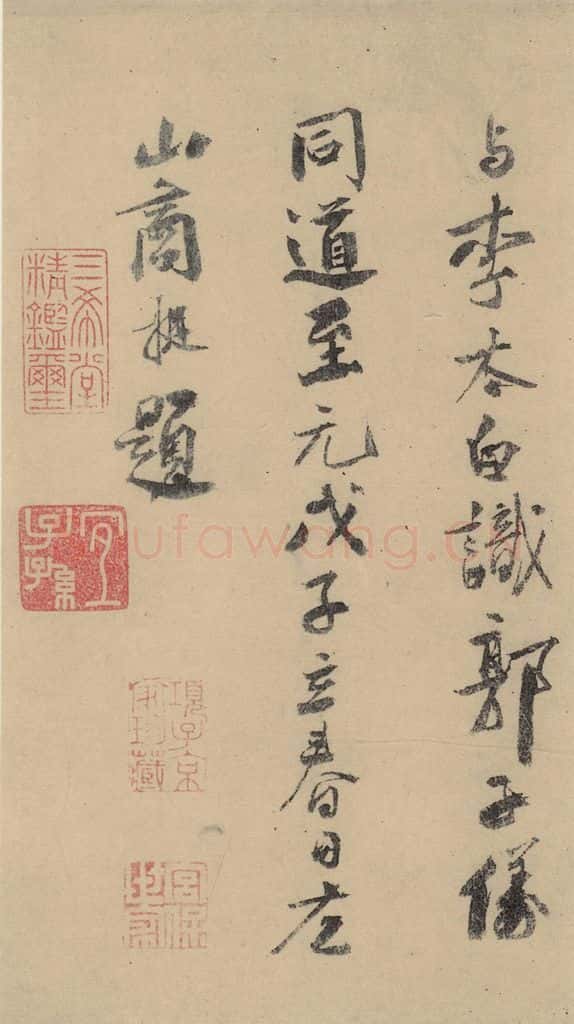 与李太白識郭子儀
同道至元戊子立春日左
山商挺題
三希堂
精鑑璽
宜
子孫
項子京
家珍藏
宮保
ufawang.c